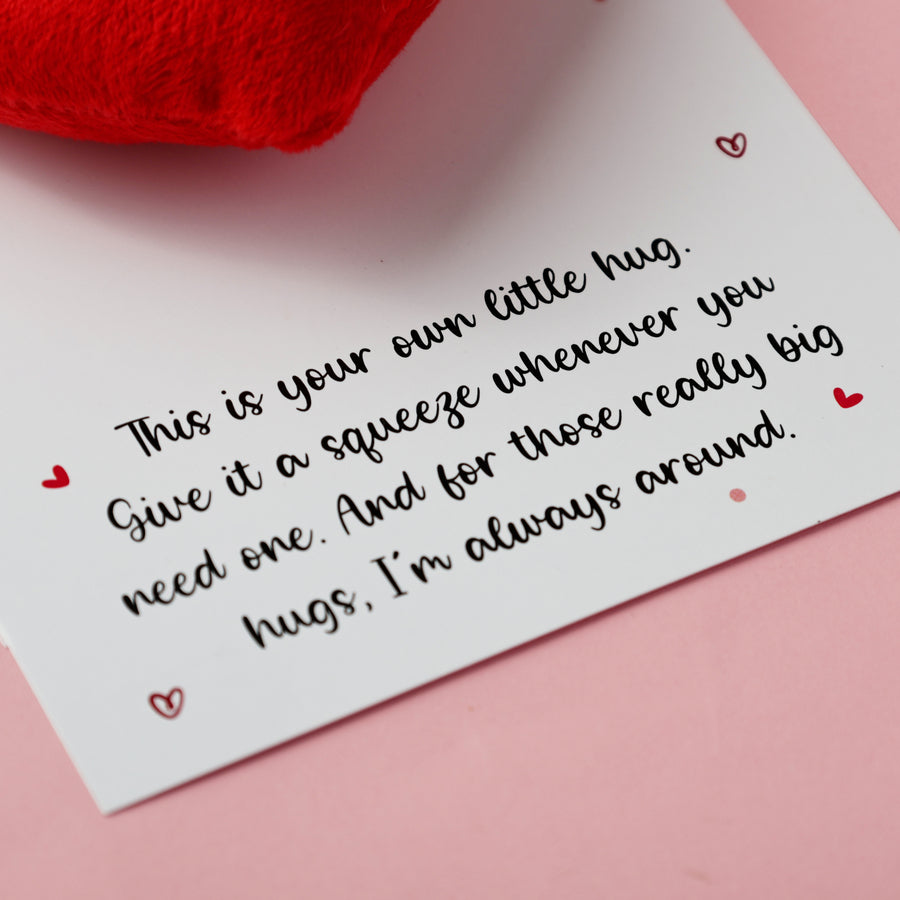 This is your own little hug.
Give it a squeeze whenever you
need one. And for those really big
hugs, I'm always around.